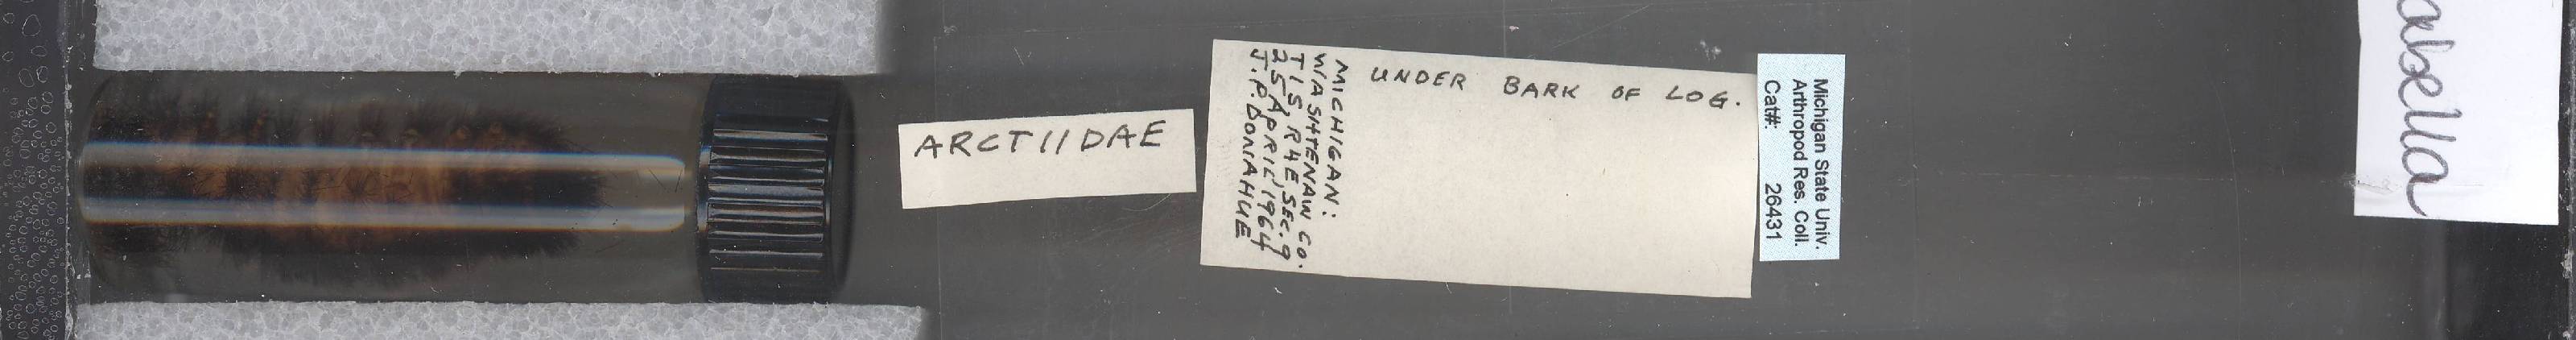 ARCTIIDAE
MICHIGAN:
WASHTENAW CO.
T1S, R4E, SEC. 9
25 APRIL, 1964
J.P. DONAHUE
UNDER BARK OF LOG.
Michigan State Univ.
Arthropod Res. Coll.
Cat#: 26431